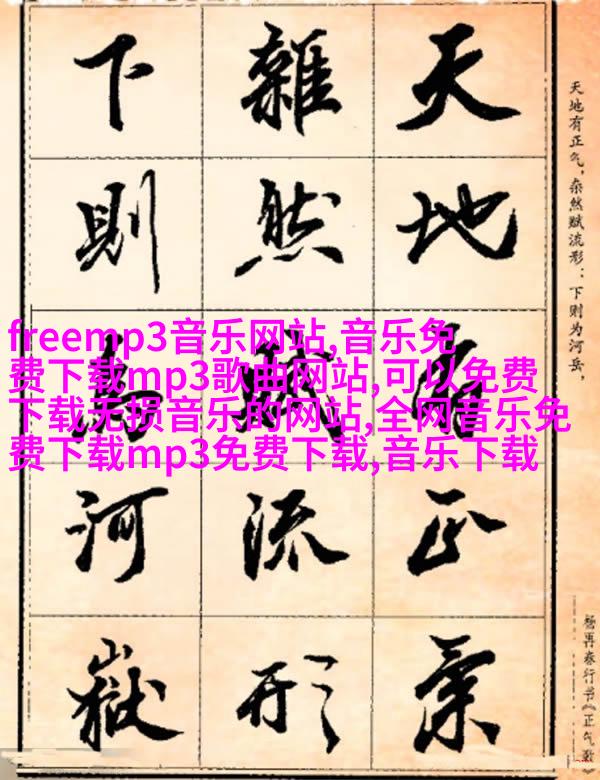 天地有正氣
雜然賦流形
下則為河嶽
天地有正气,杂然赋流形:下则为河岳,
杨再春行书《正气歌》
freemp3音乐网站,音乐免
费下载mp3歌曲网站,可以免费
下载无损音乐的网站,全网音乐免
费下载mp3免费下载,音乐下载